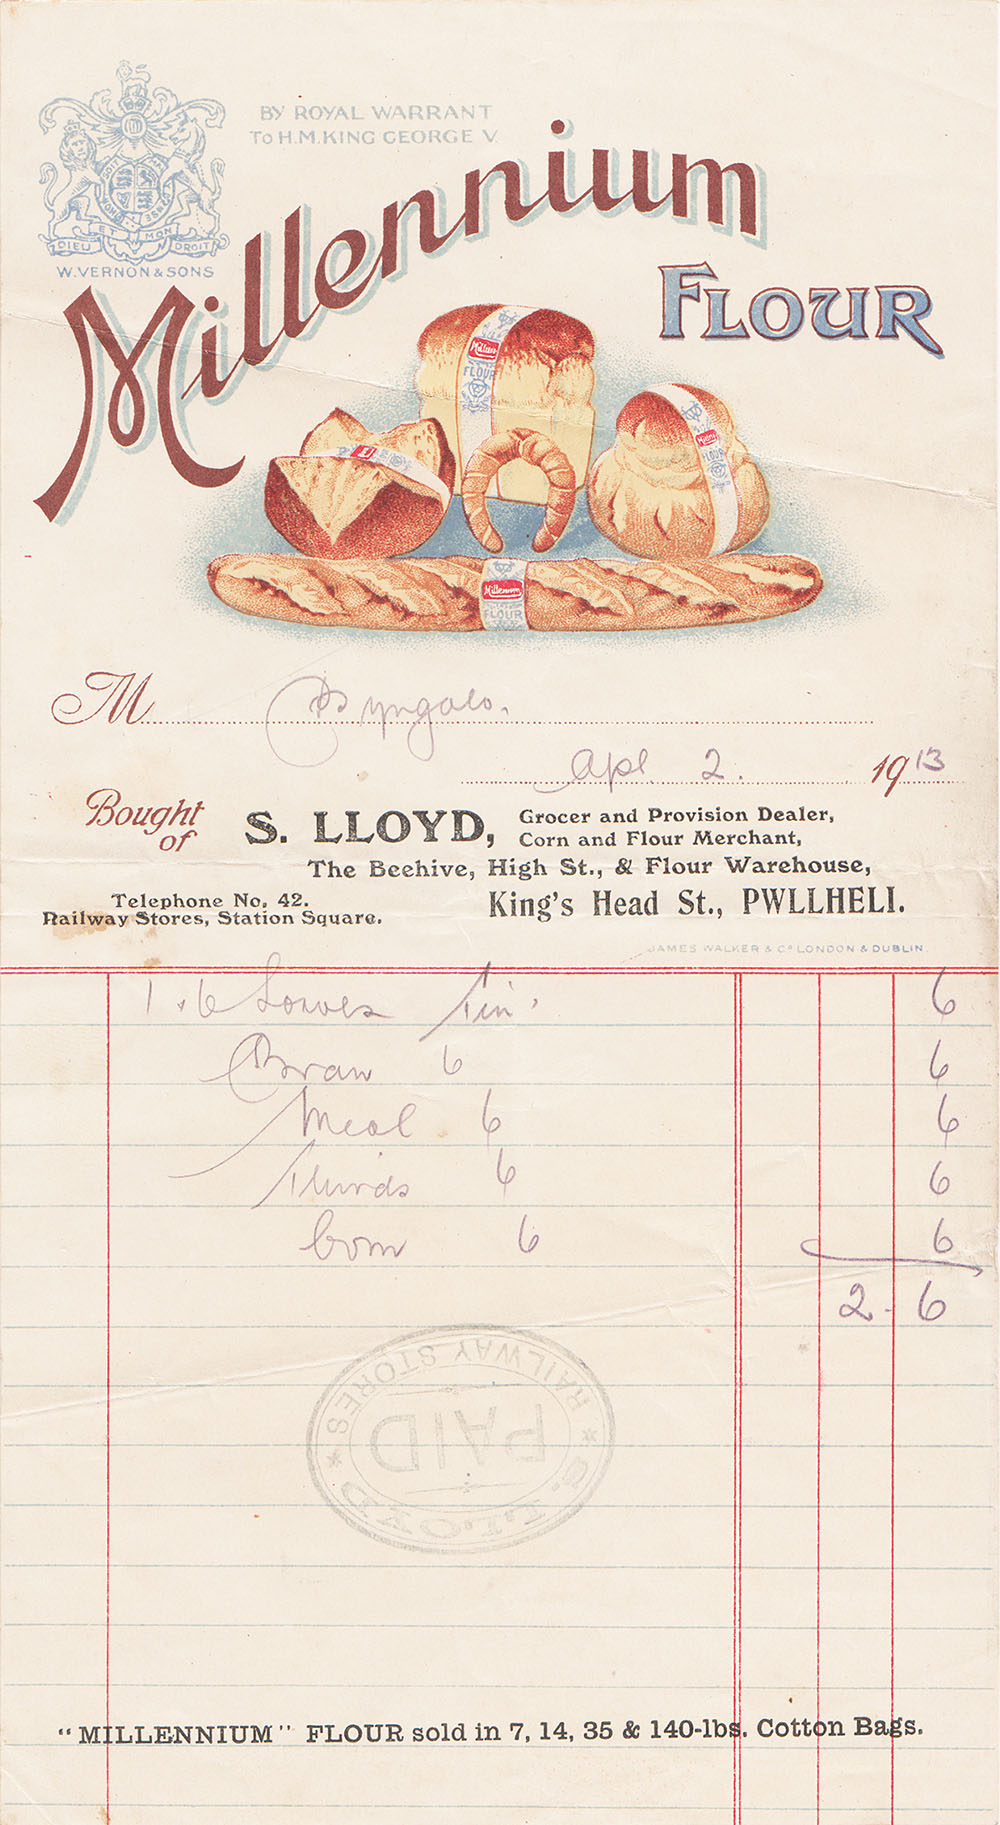 BY ROYAL WARRANT
TO H.M. KING GEORGE V.
SOIT QUI MAL Y PENSE HONI
DIEU ET MON DROIT
W. VERNON & SONS
Millennium
FLOUR
Millennium
FLOUR
Millennium
FLOUR
M
Apl 2. 1913
Bought of
S. LLOYD,
Grocer and Provision Dealer,
Corn and Flour Merchant,
The Beehive, High St., & Flour Warehouse,
Telephone No. 42.
Railway Stores, Station Square.
King's Head St., PWLLHELI.
JAMES WALKER & Co LONDON & DUBLIN.
1. 6 Loaves Tin. 6
Bran 6 6
Meal 6 6
Thirds 6 6
6 6
2 - 6
S. LLOYD
PAID
* RAILWAY STORES *
"MILLENNIUM" FLOUR sold in 7, 14, 35 & 140-lbs. Cotton Bags.